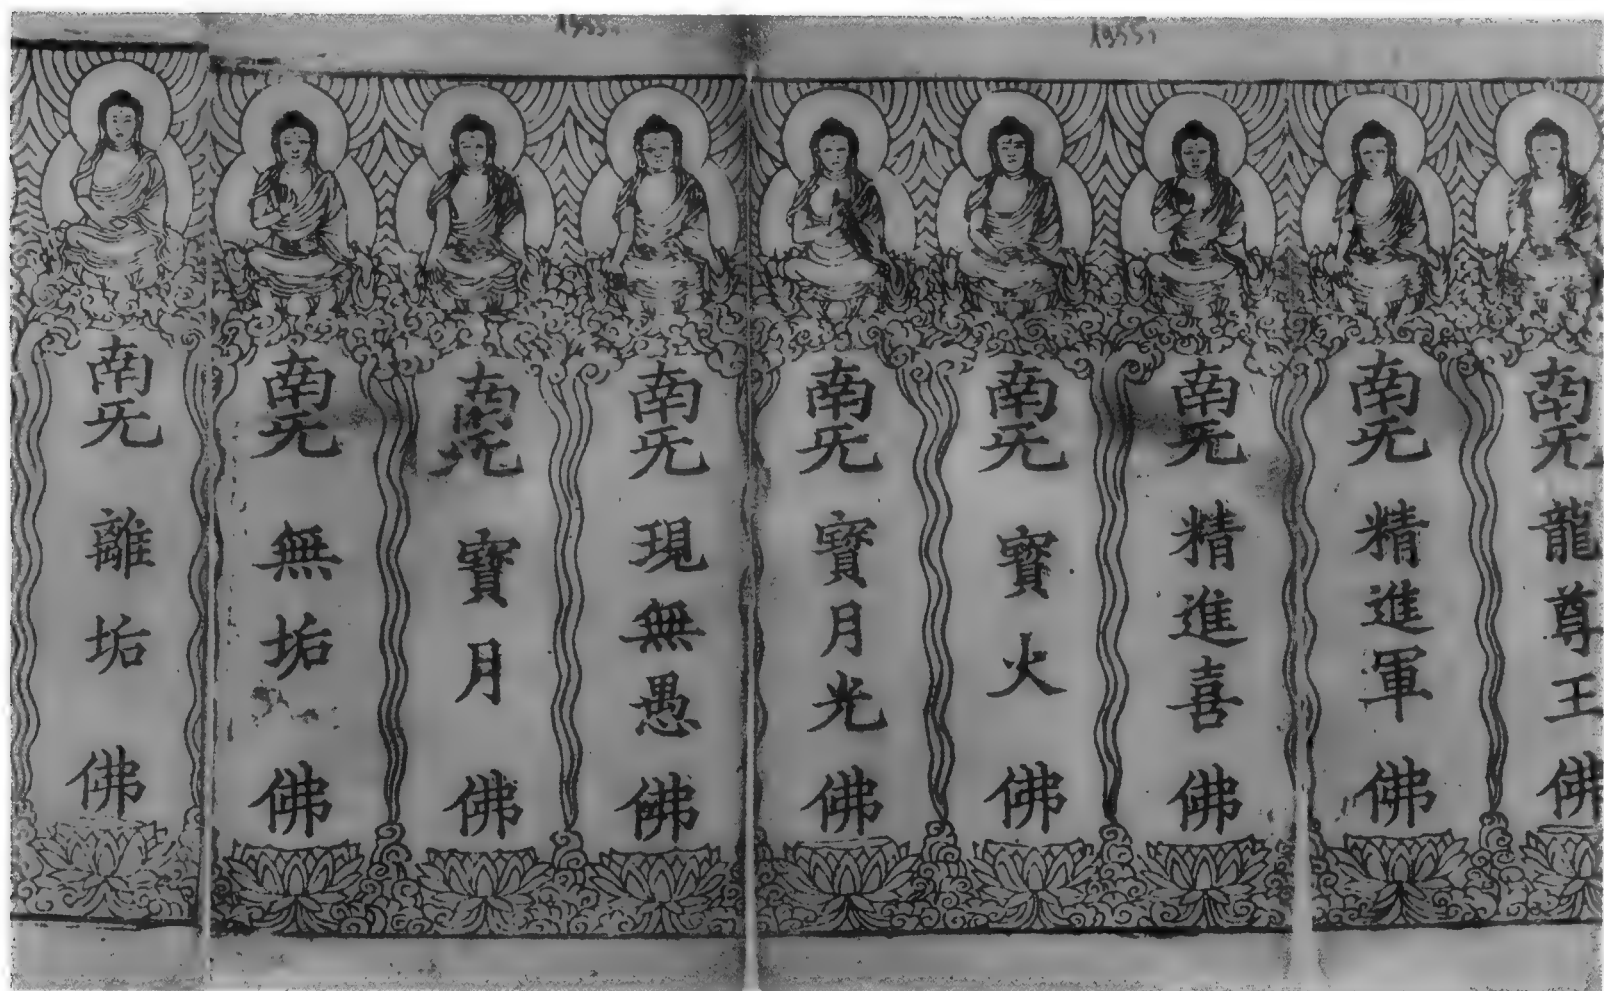 南无龍尊王佛
南无精進軍佛
南无精進喜佛
南无寶火佛
南无寶月光佛
南无現無愚佛
南无寶月佛
南无無垢佛
南无離垢佛